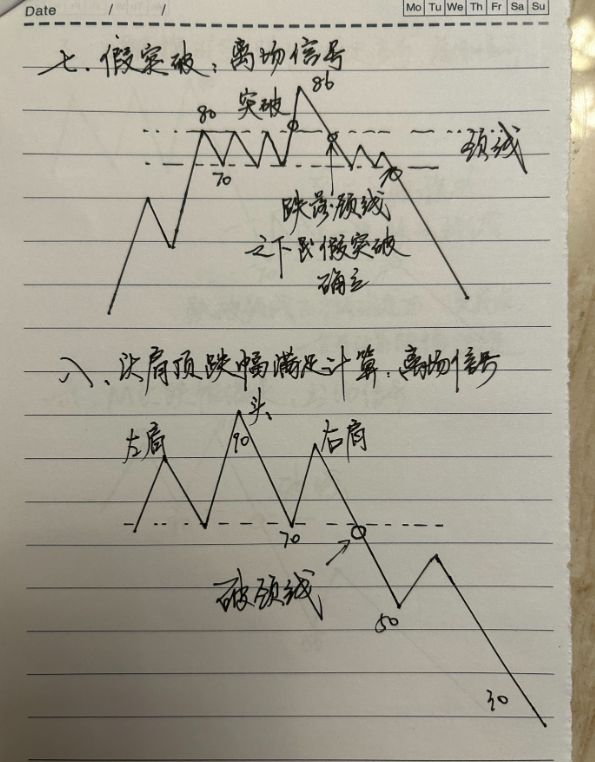 Date / /
Mo Tu We Th Fr Sa Su
七、假突破：离场信号
突破
86
80
颈线
70
70
跌落颈线
之下民假突破
确立
八、头肩顶跌幅满足计算：离场信号
头
左肩
右肩
90
70
破颈线
50
30